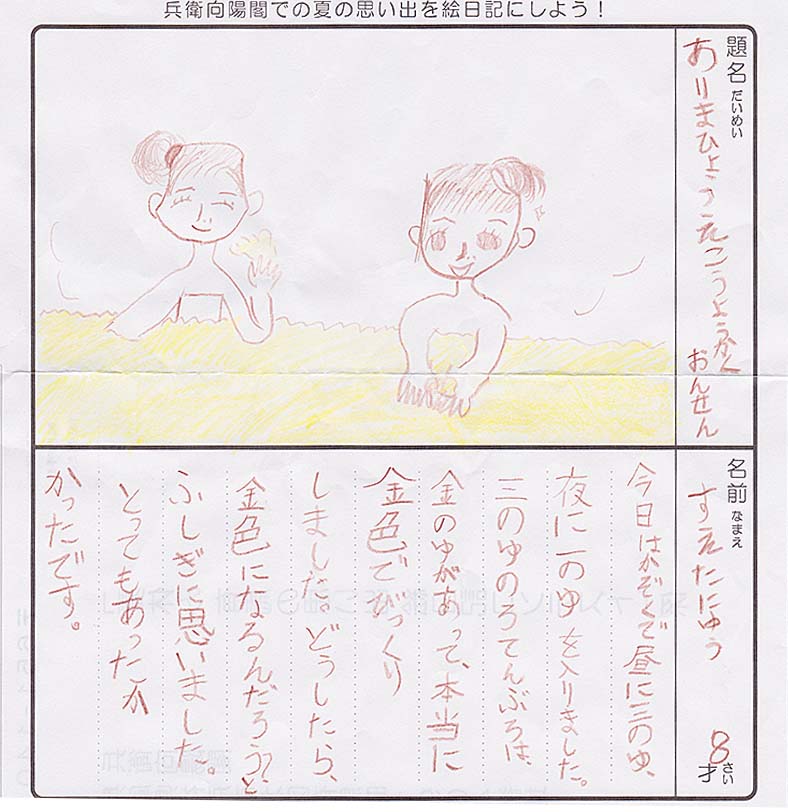 兵衛向陽閣での夏の思い出を絵日記にしよう！
題名 だいめい
ありまひょうえこうようかく
おんせん
名前 なまえ
すえたにゆう
8才 さい
今日はかぞくで昼に三のゆ、
夜に一のゆを入りました。
三のゆのろてんぶろは、
金のゆがあって、本当に
金色でびっくり
しました。どうしたら、
金色になるんだろう？と
ふしぎに思いました。
とってもあったか
かったです。